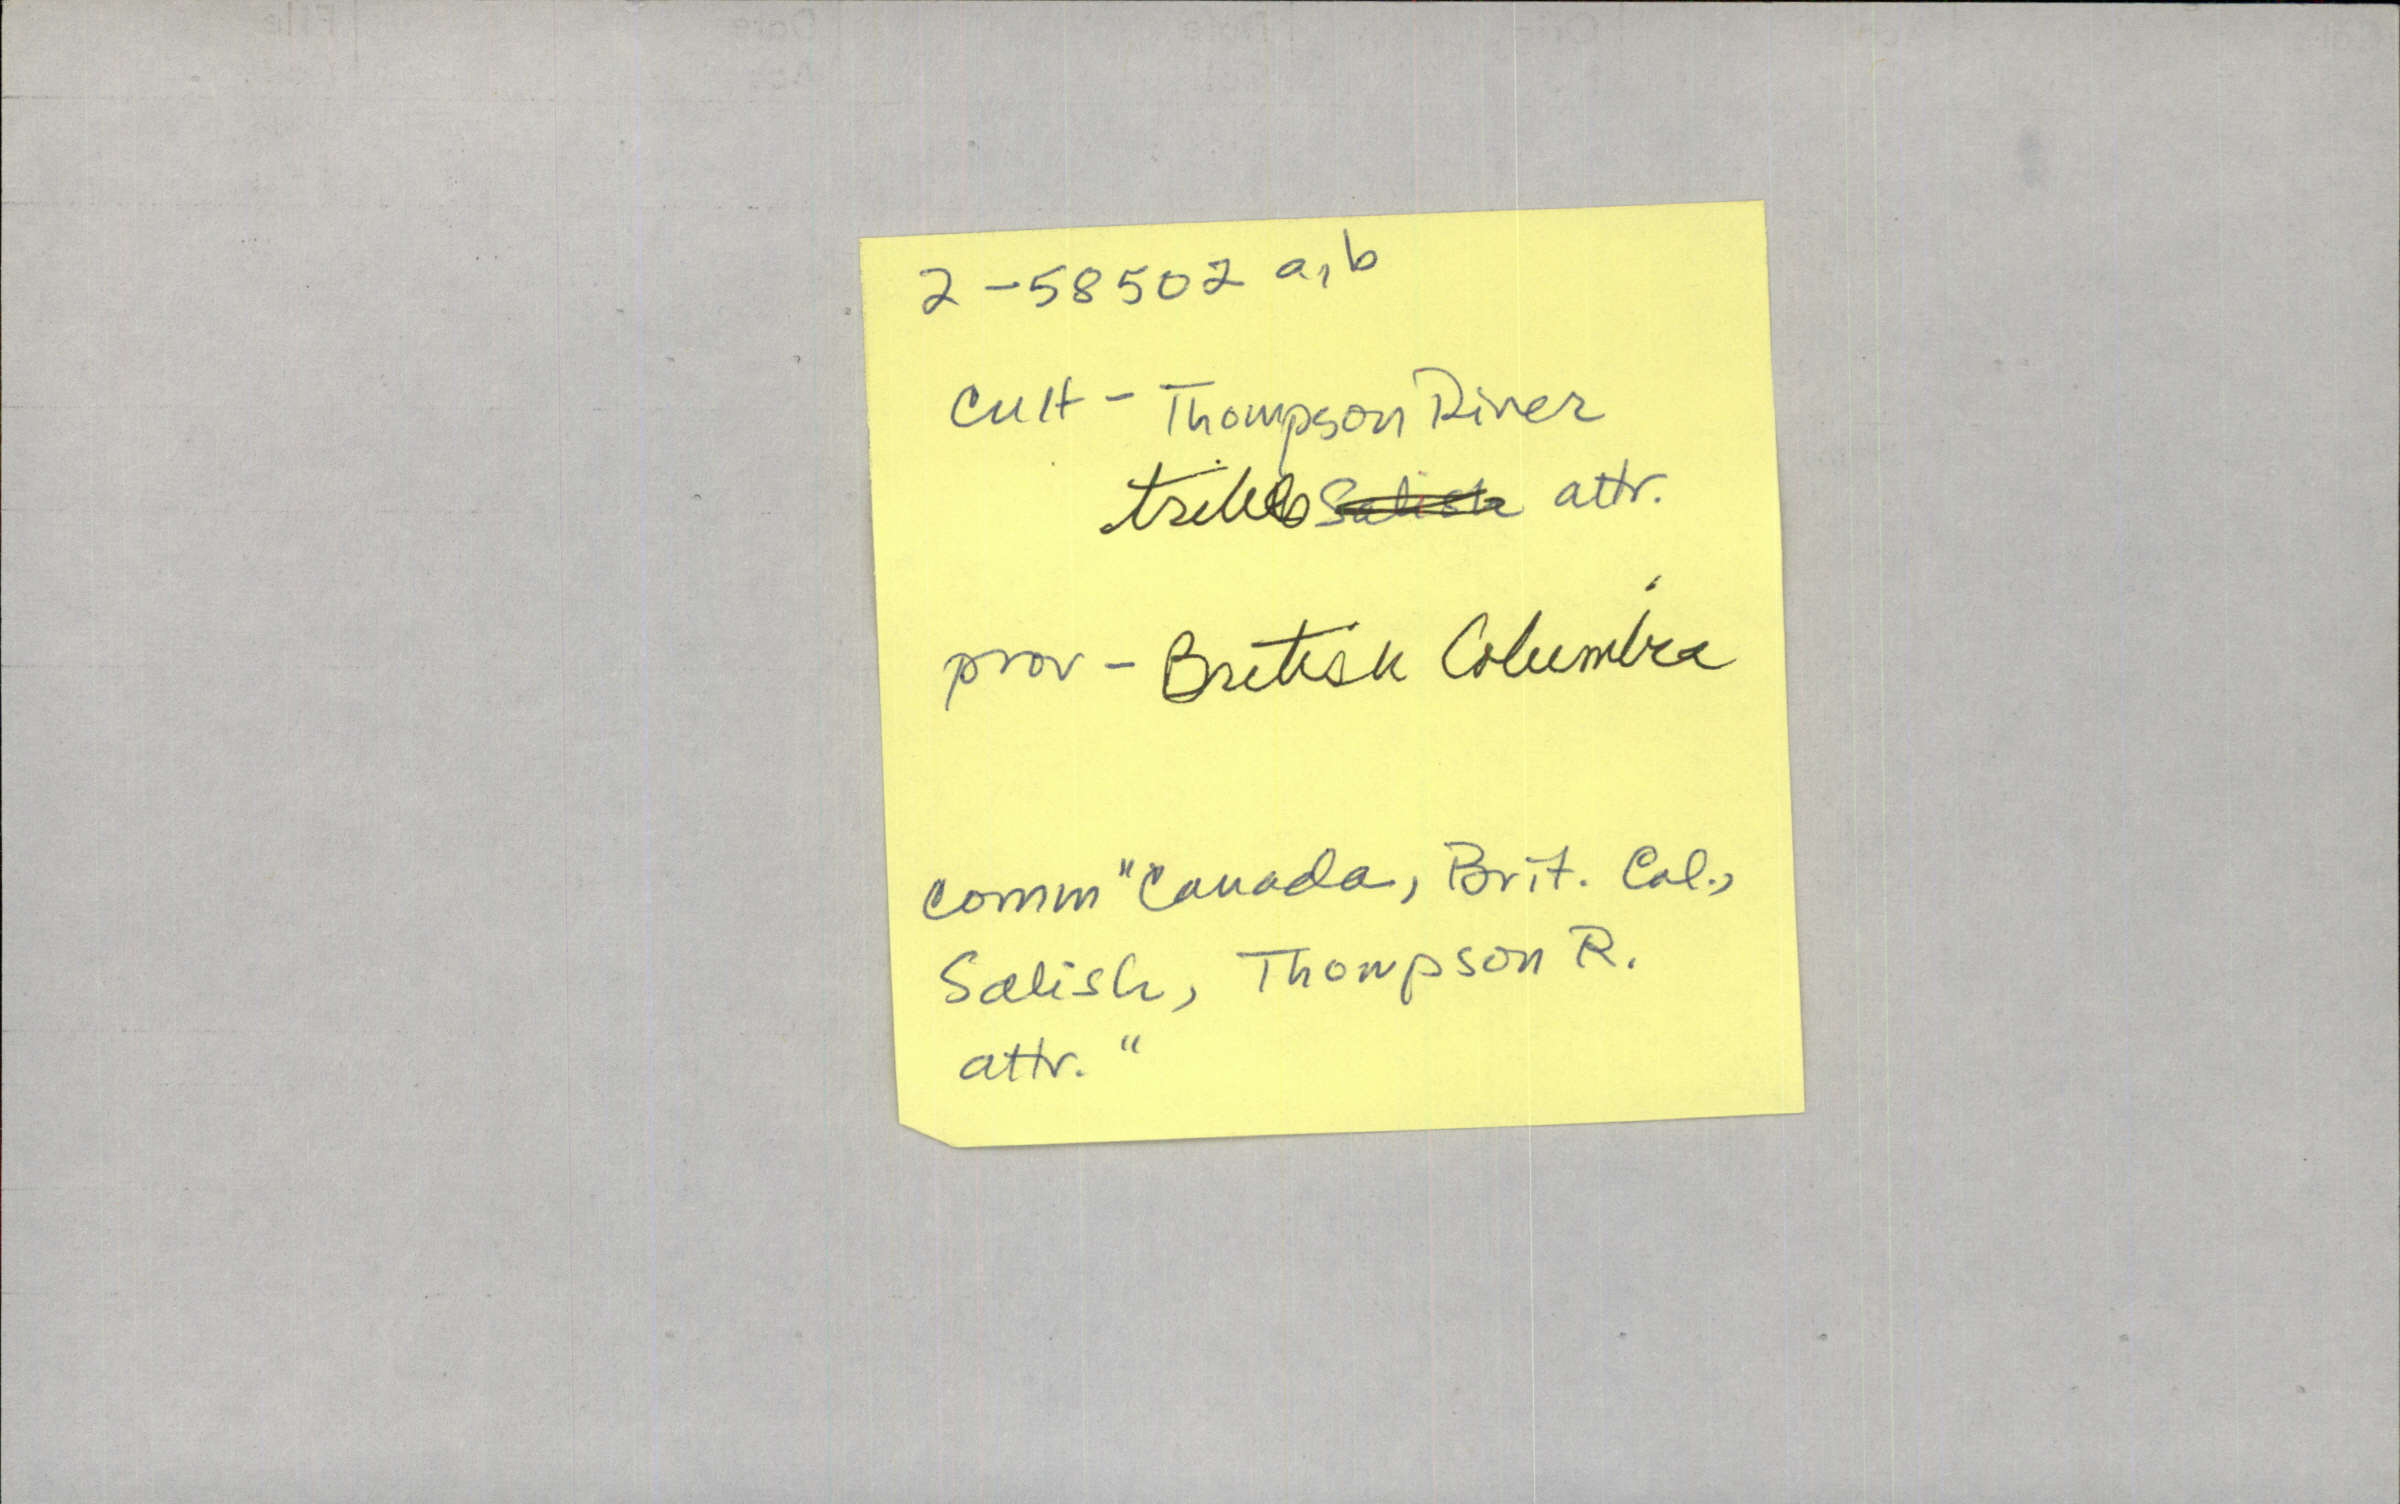 2-58502 a,b
Cult - Thompson River
tribe Salish attr.
prov - British Columbia
Comm "Canada, Brit. Col.,
Salish, Thompson R.
attr."